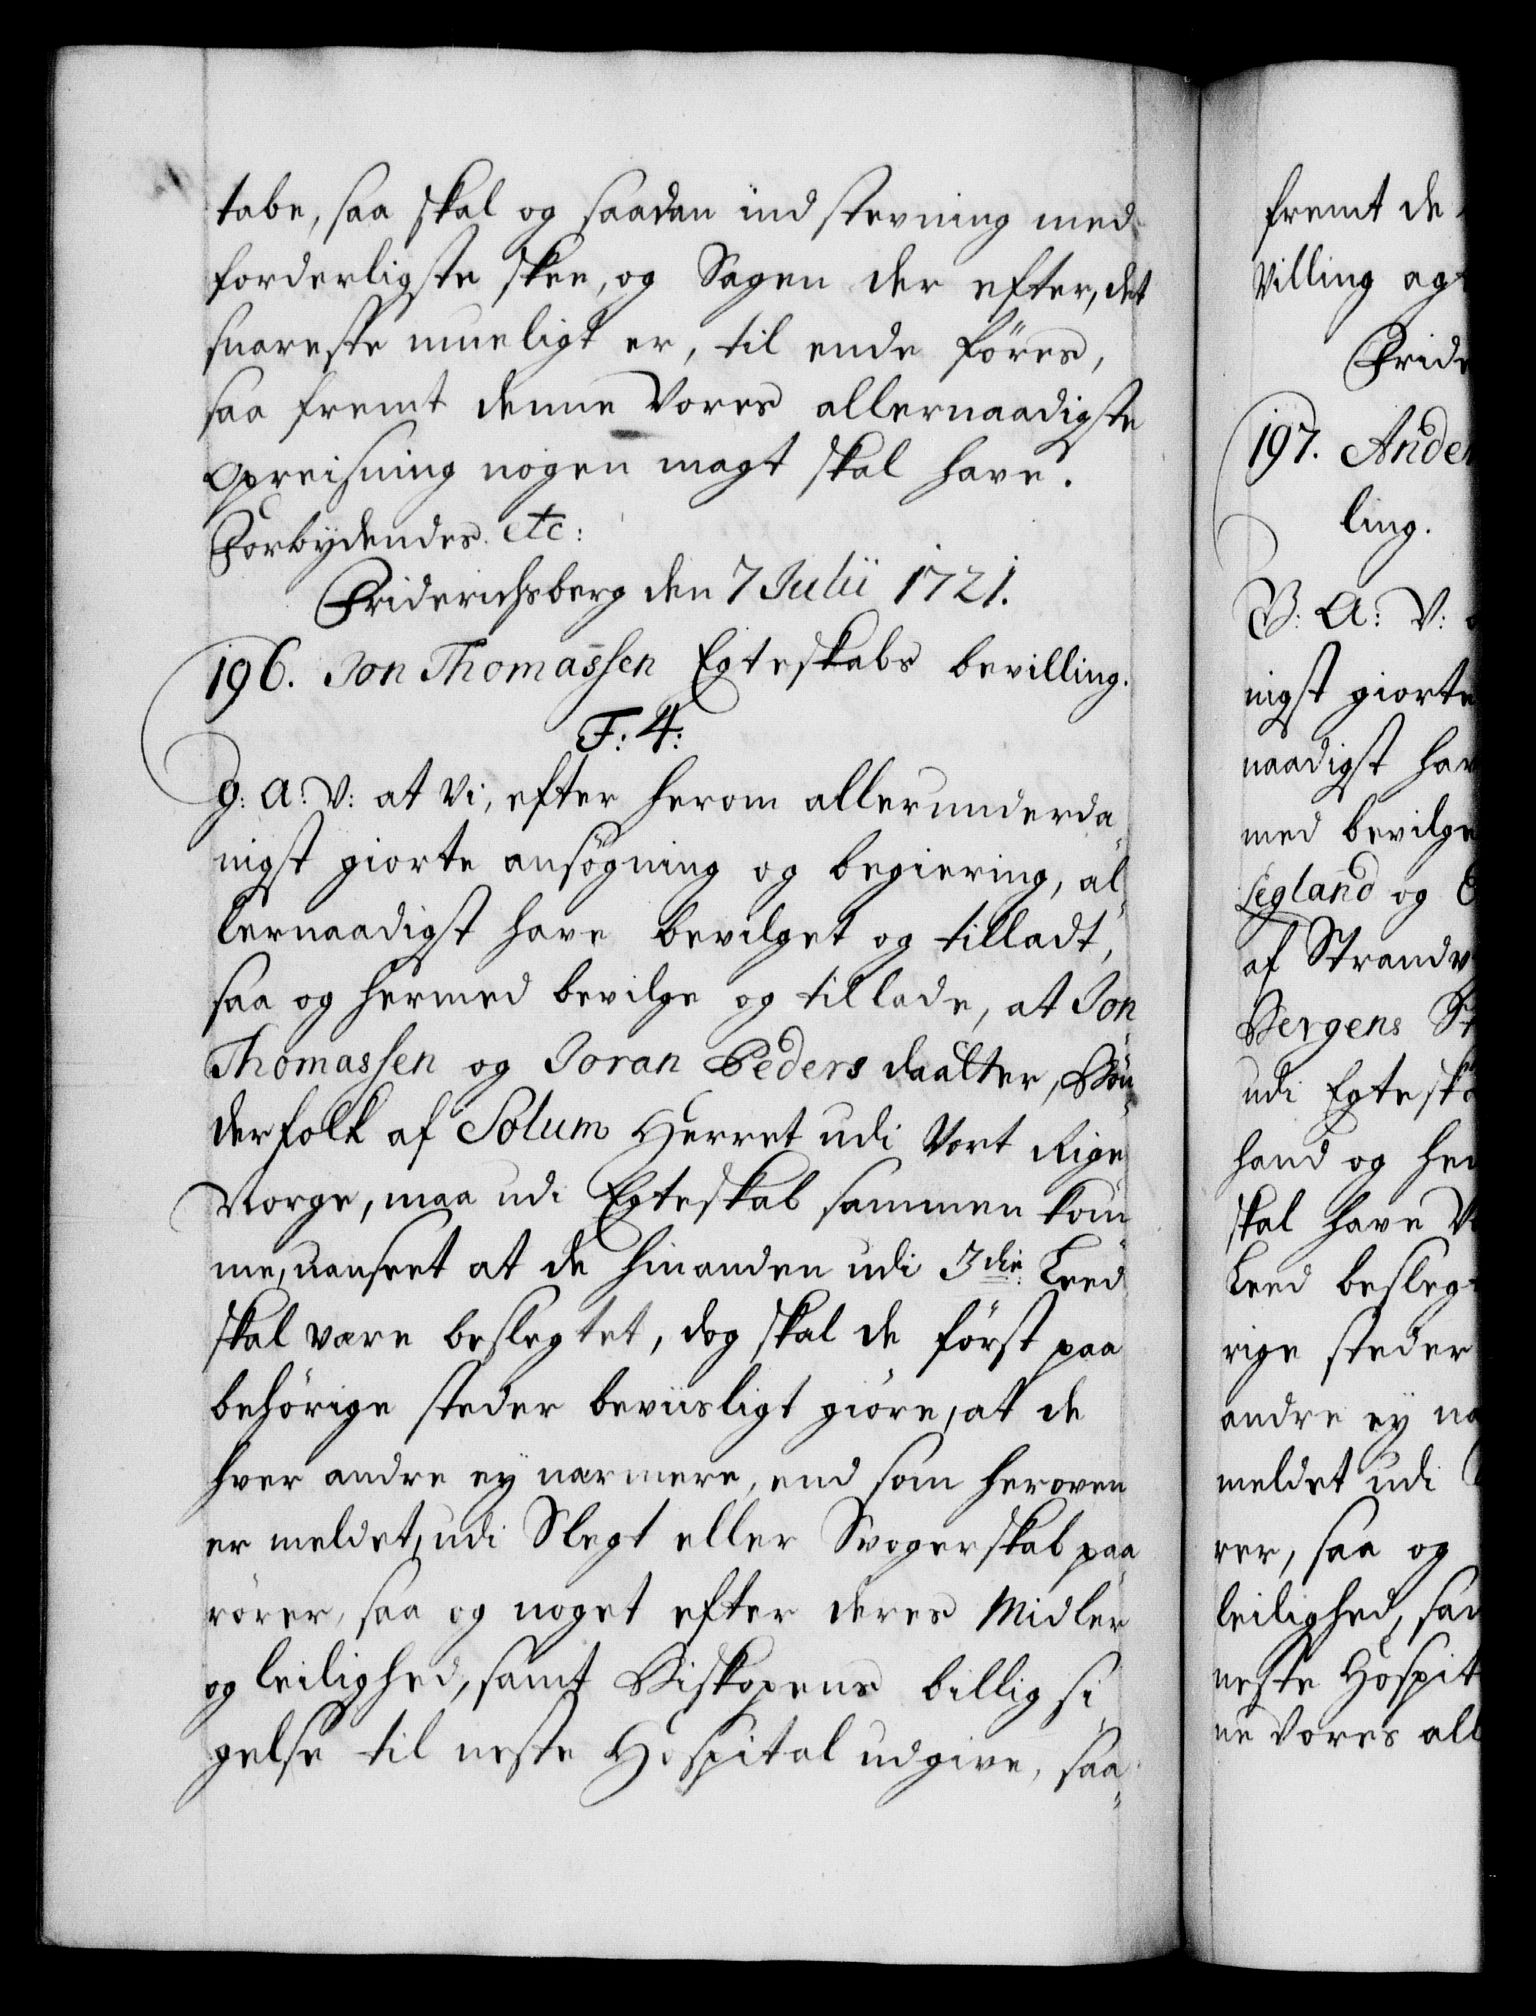 tabe, saa skal og saadan indstevning med
forderligste skee, og Sagen der efter, det
snareste mueligt er, til ende föres,
saa fremt denne Vores allernaadigste
opreisning nogen magt skal have.
Forbydendes etc:
Friderichsberg den 7 Julii 1721.
196. Jon Thomassen Egteskabs bevilling.
F: 4:
G: A: V: at Vi, efter herom allerunderda„
nigst giorte ansögning og begiering, al„
lernaadigst have bevilget og tilladt,
saa og hermed bevilge og tillade, at Jon
Thomassen og Joran Peders daatter, Bön„
derfolk af Solum Herret udi Vort Rige
Norge, maa udi Egteskab sammen kom„
me, uanseet at de hinanden udi 3die Leed
skal være beslegtet, dog skal de först paa
behörige steder beviisligt giöre, at de
hver andre ey nærmere, end som heroven
er meldet, udi Slegt eller Svogerskab paa„
rörer, saa og noget efter deres Midler
og leilighed, samt Biskopens billig si„
gelse til neste Hospital udgive, saa„
fremt de
Villing ag
Frid
197. Ander
ling.
V: A: V:
nigst giorte
naadigst hav
med bevilge
Legland og
af Strandv
Bergens St
udi Egtesk
hand og hen
skal have V
Leed besleg
rige steder
andre ey n
meldet udi
rer, saa og
leilighed, sa
neste Hospit
ne Vores all